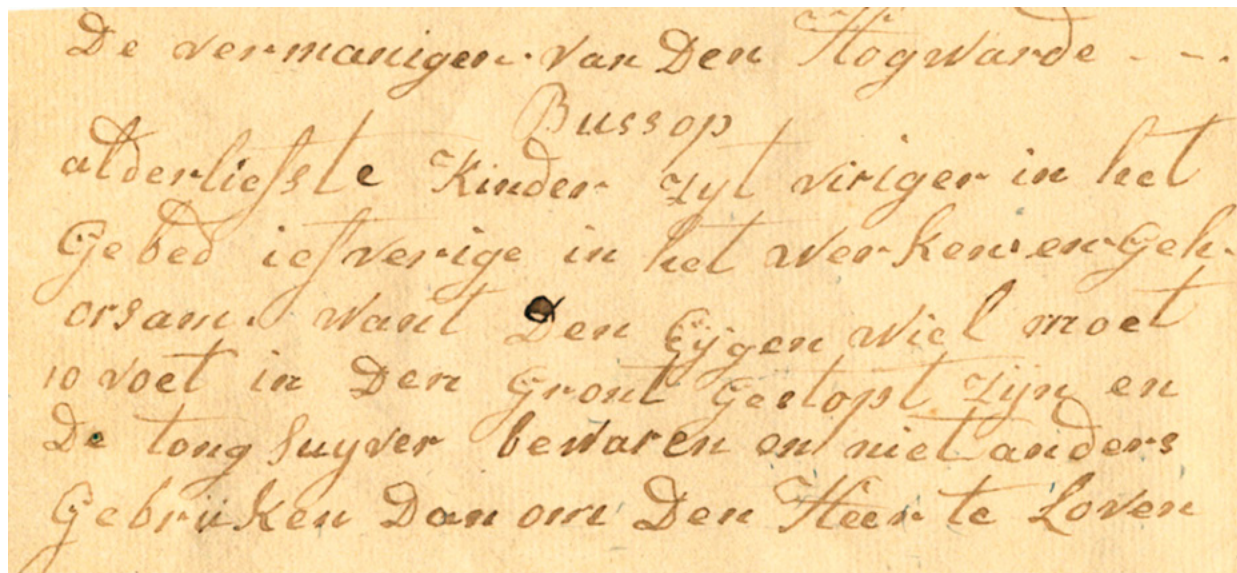 De vermanigen van Den Hogwarde - - .
Bussop
alderliefste Kinder zyt viriger in het
Gebed iefverige in het werken en Geh-
orsam. want Den Eijgen wiel moet
10 voet in Den Gront Gestopt zijn en
De tong suyver bewaren en niet anders
Gebruken Dan om Den Heer te Loven